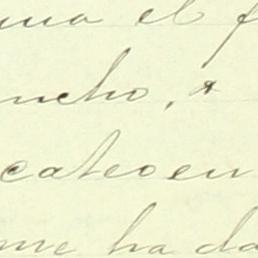 una el f
ncho, a
cateo en
me ha da